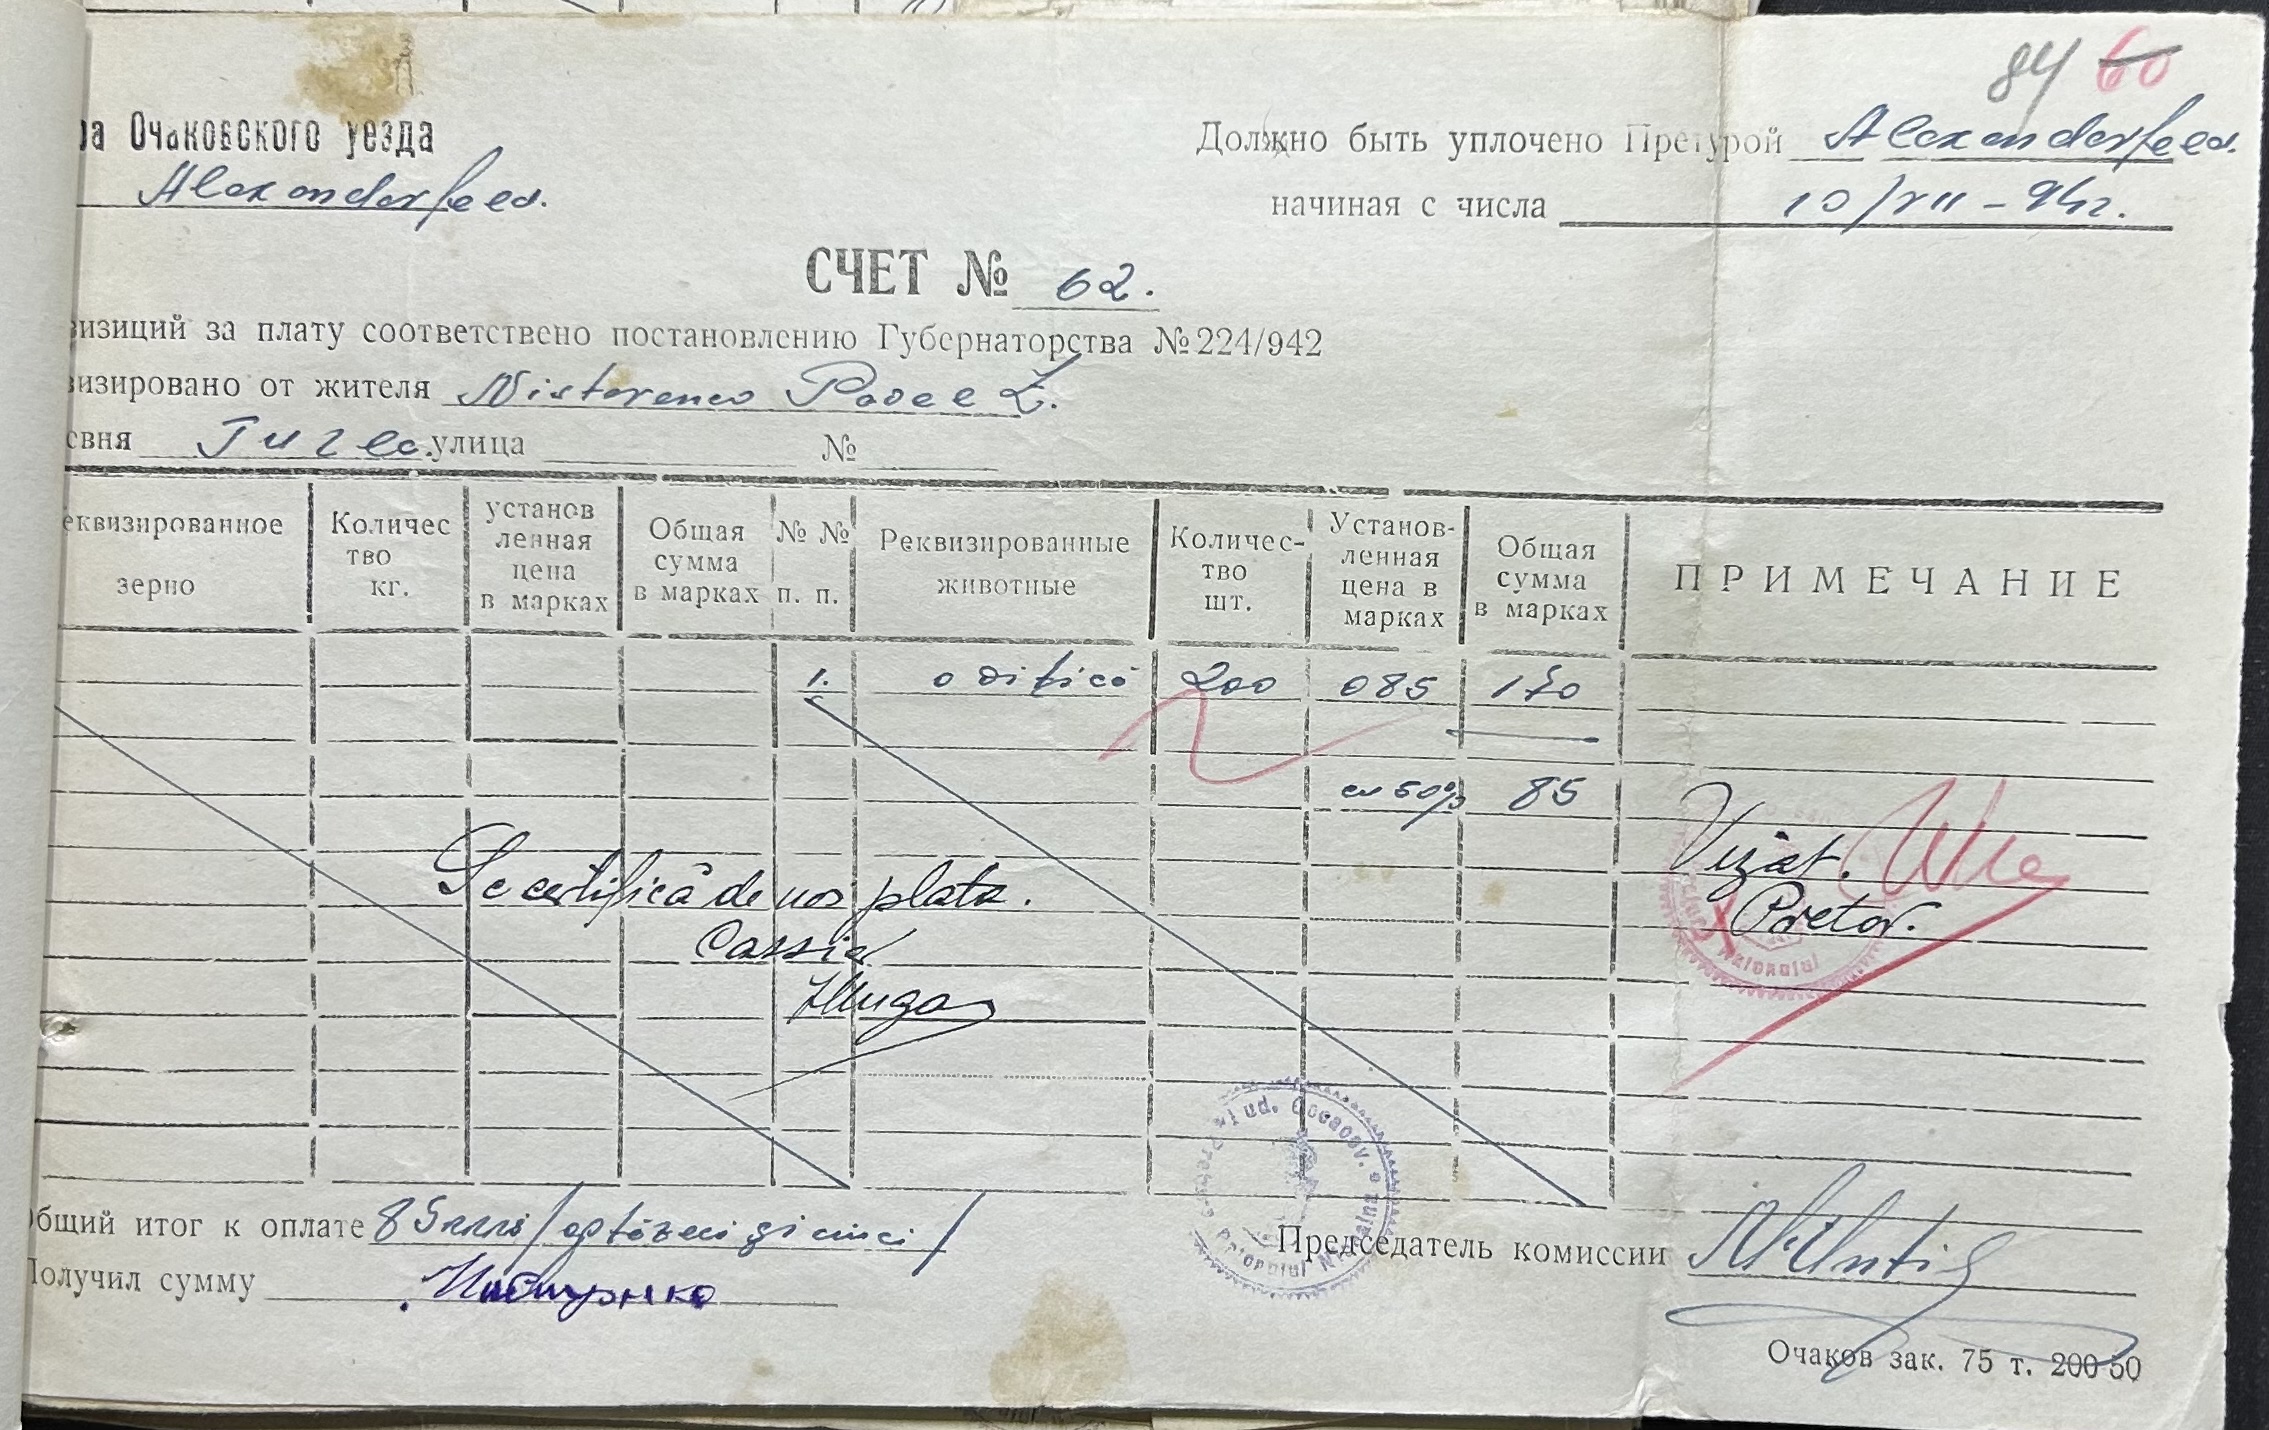 84 60
ра Очаковского уезда
Alexanderfeld.
Должно быть уплочено Претурой Alexanderfeld.
начиная с числа 10/VII-942.
СЧЕТ № 62.
визиций за плату соответствено постановлению Губернаторства № 224/942
визировано от жителя Nisterenco Pavel Z.
евня улица №
еквизированное зерно
Количес тво кг.
установ ленная цена в марках
Общая сумма в марках
№ № п. п.
Реквизированные животные
Количес- тво шт.
Установ- ленная цена в марках
Общая сумма в марках
ПРИМЕЧАНИЕ
1. o vitică 200 085 170
cu 50% 85
Se certifică de noi plata.
Cassier
Vizat.
Pretor.
Raionului
Pretura Raionului Jud. Oceacov.
бщий итог к оплате 85 / optzeci şi cinci /
Получил сумму Нистренко
Председатель комиссии
Очаков зак. 75 т. 200 50